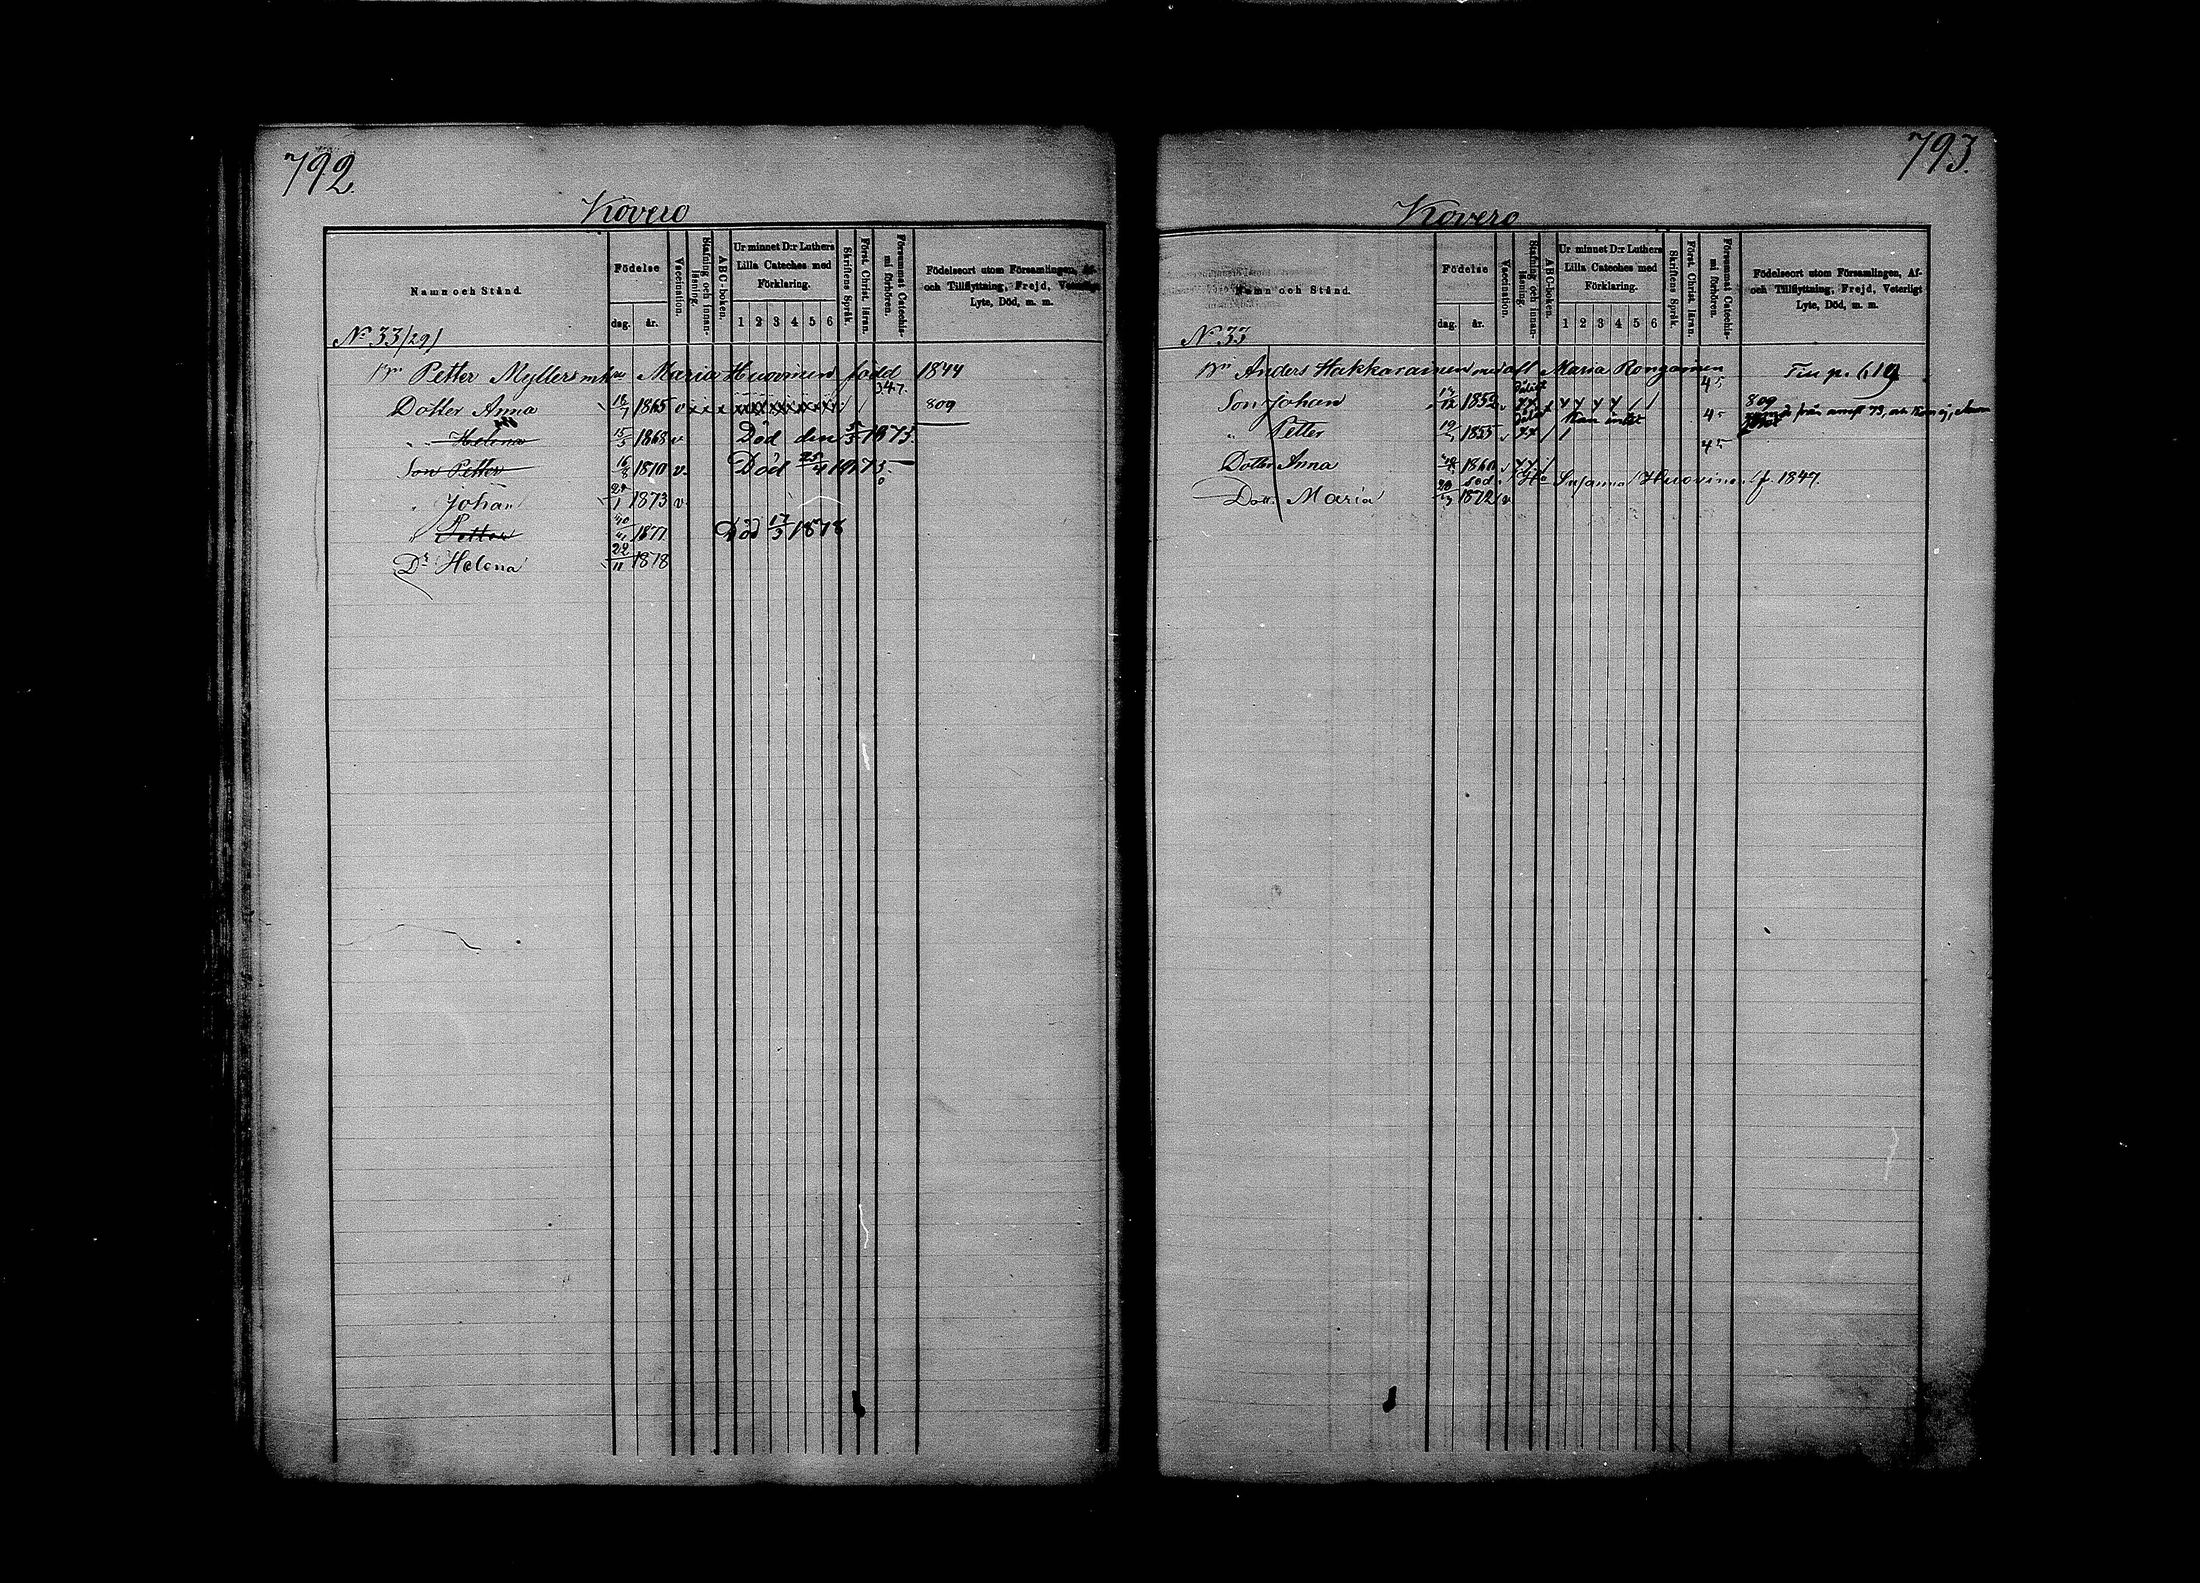 792.
Kovero
Namn och Stånd.
Födelse
dag. år.
Vaccination.
Stafning och innan-
läsning.
ABC-boken.
Ur minnet D:r Luthers
Lilla Cateches med
Förklaring.
1 2 3 4 5 6
Skriftens Språk.
Först. Christ. läran.
Försummat Catechis-
mi förhören.
Födelseort utom Församlingen, Af-
och Tillflyttning, Frejd, Veterligt
Lyte, Död, m. m.
No 33/29/
Petter Myllers Maria Huovinen född 1844
347.
Dotter Anna 18/7 1865 v x x x xxxxxxxxxxx / / 809
" Helena 15/5 1868 v Död den 5/3 1873.
Son Petter 16/8 1870 v. Död 25/4 1873.
" Johan 1873 v
" Petter 1877 Död 17/3 1878
Dr Helena 22/11 1878
793.
Kovero
Namn och Stånd.
Födelse
dag. år.
Vaccination.
Stafning och innan-
läsning.
ABC-boken.
Ur minnet D:r Luthers
Lilla Cateches med
Förklaring.
1 2 3 4 5 6
Skriftens Språk.
Först. Christ. läran.
Försummat Catechis-
mi förhören.
Födelseort utom Församlingen, Af-
och Tillflyttning, Frejd, Veterligt
Lyte, Död, m. m.
No 33
Anders Hakkarainen med Maria Rongainen
Son Johan 1852 809
" Petter 19 1855 Kan intet från 73,
Dotter Anna 1860
Susanna Huovinen f. 1847.
Dott. Maria 20 1872 v